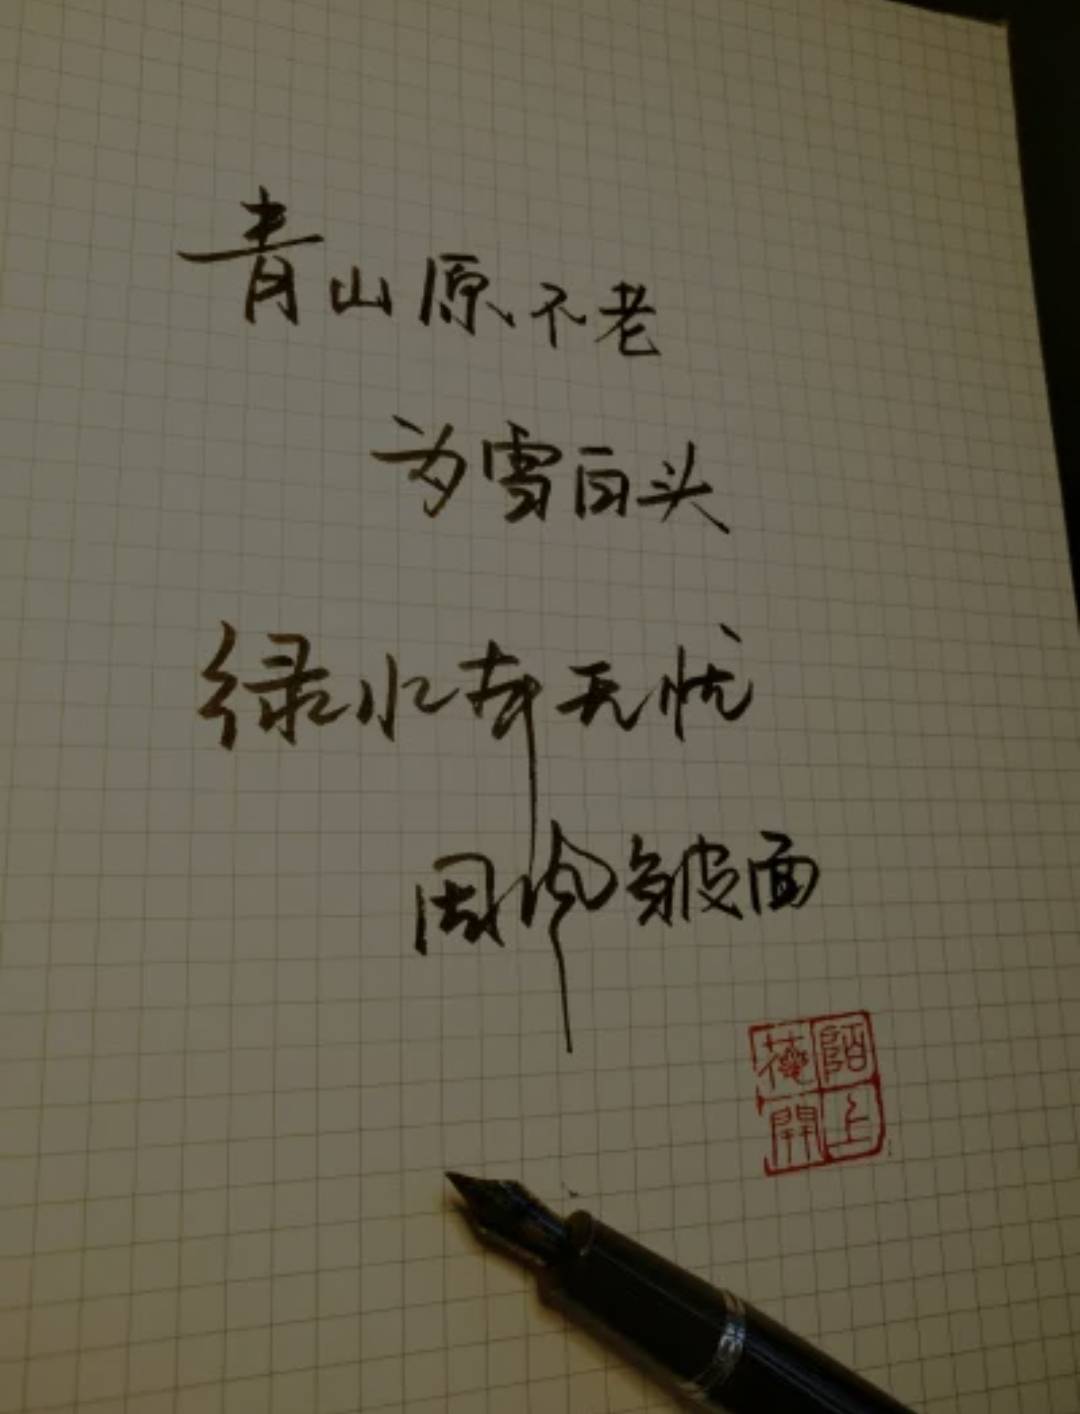 青山原不老
为雪白头
绿水本无忧
因风皱面
陌上
花開